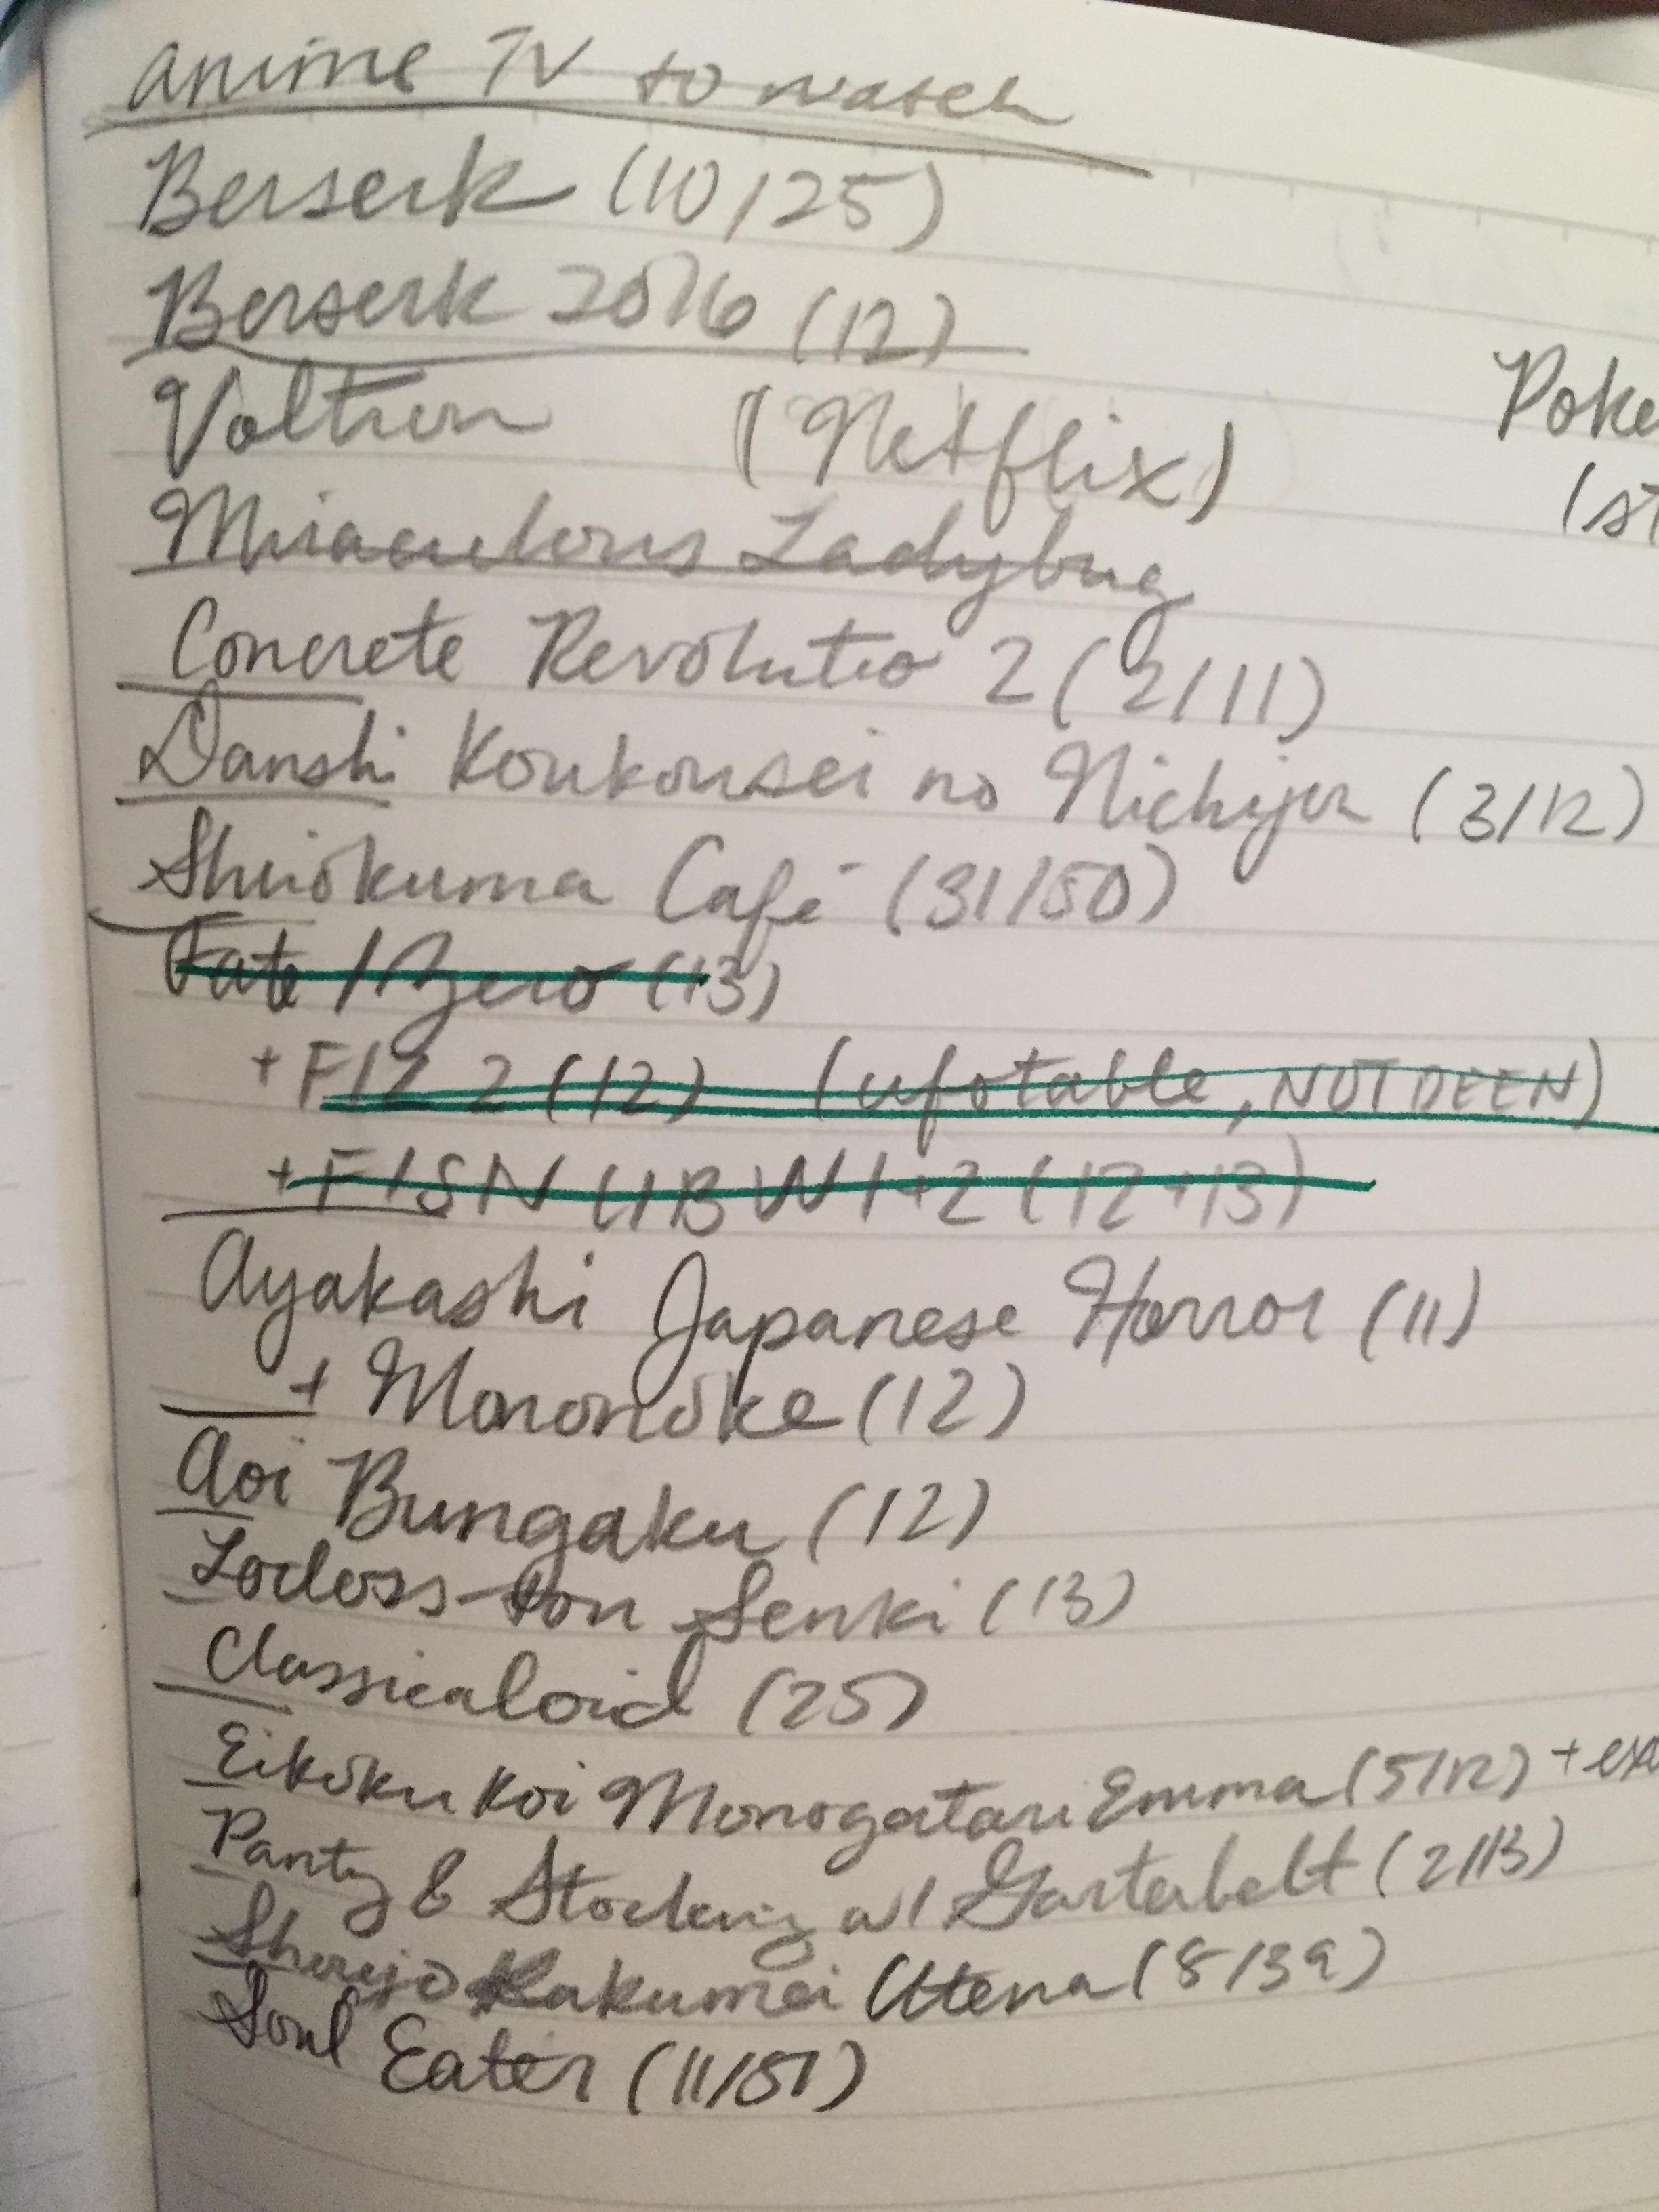 anime TV to watch
Berserk (10/25)
Berserk 2016 (12)
Voltron (Netflix)
Poke
(st
Miraculous Ladybug
Concrete Revolutio 2 (2/11)
Danshi Koukousei no Nichijou (3/12)
Shirokuma Café (31/50)
Fate/Zero (13)
+ F/Z 2 (12) (ufotable, NOT DEEN)
+ F/SN UBW 1+2 (12+13)
Ayakashi Japanese Horror (11)
+ Mononoke (12)
Aoi Bungaku (12)
Lodoss-tou Senki (13)
Classicaloid (25)
Eikoku Koi Monogatari Emma (5/12) + ex
Panty & Stocking w/ Garterbelt (2/13)
Shoujo Kakumei Utena (8/39)
Soul Eater (11/51)